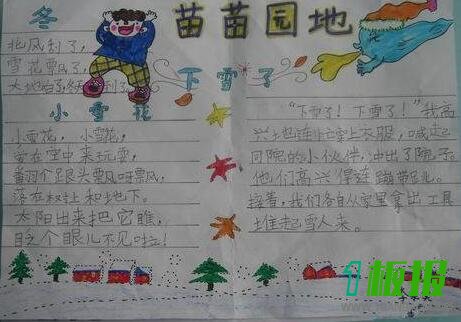 苗苗园地
冬
北风刮了,
雪花飘了,
大地
下雪了
小雪花
小雪花,小雪花,
在空中来玩耍,
翻个跟头飘呀飘,
落在树上和地下。
太阳出来把它瞧,
眨个眼儿不见啦!
“下雪了!下雪了!”我高
兴地连忙穿上衣服,喊起
同院的小伙伴,冲出了院子。
他们高兴得连蹦带跳。
接着,我们各自从家里拿出工具
堆起雪人来。
1板报